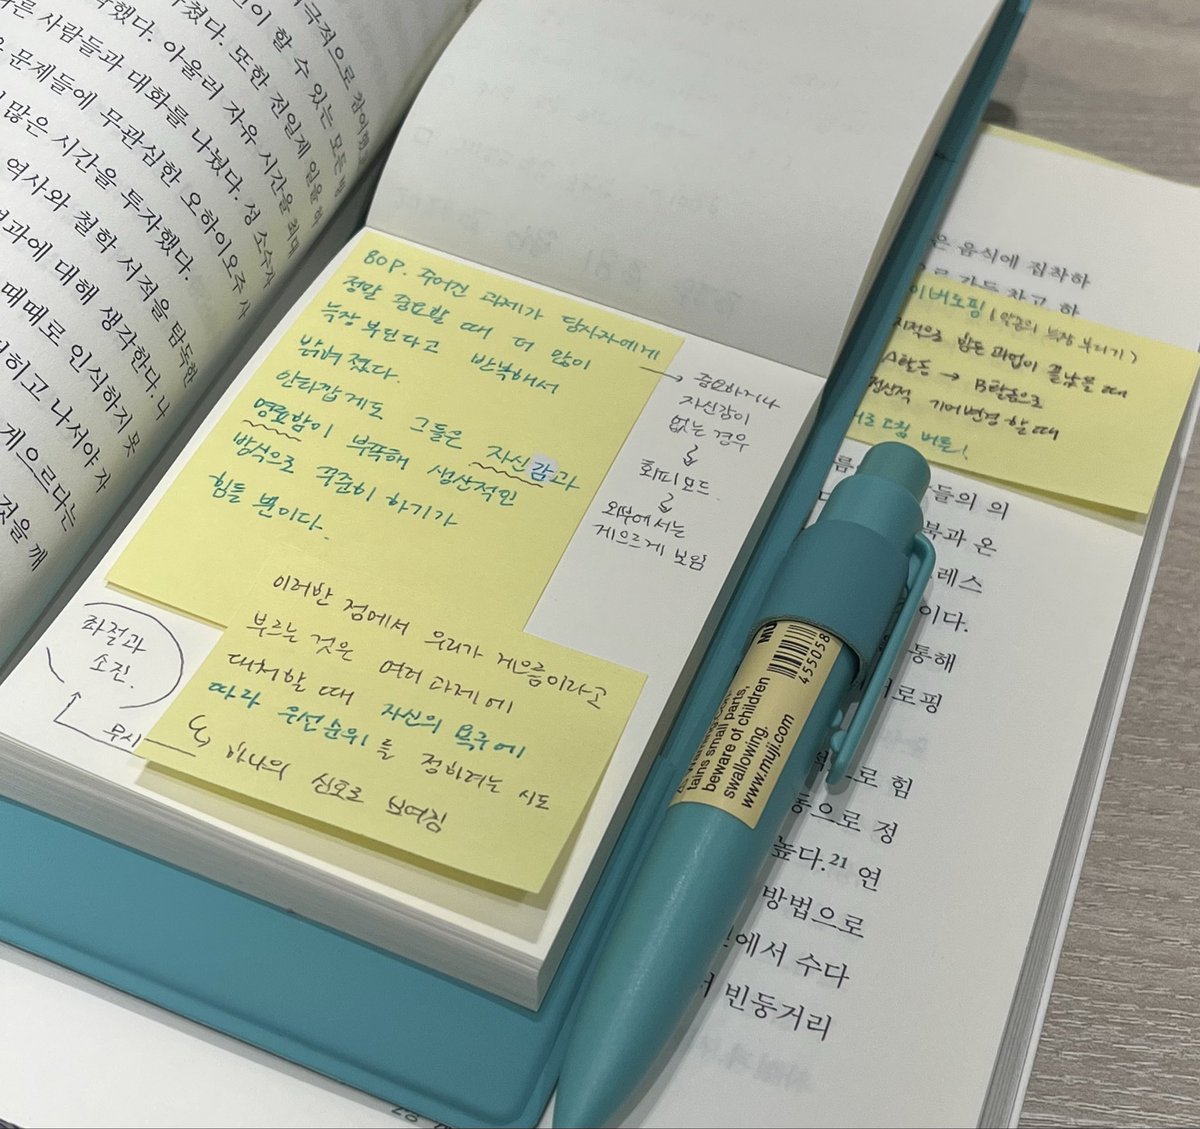 극적으로 참여했고
인이 할 수 있는 모든 방
쳤다. 또한 전일제 일을 하
했다. 아울러 자유 시간을 최대
다른 사람들과 대화를 나눴다. 성 소수자
문제들에 무관심한 오하이오주 사
많은 시간을 투자했다.
역사와 철학 서적을 탐독한
결과에 대해 생각한다. 나
때때로 인식하지 못
하고 나서야 자
게으르다는
것을 깨
80P. 주어진 과제가 당사자에게
정말 중요할 때 더 많이
늑장 부린다고 반복해서
밝혀졌다.
안타깝게도 그들은 자신감과
명료함이 부족해 생산적인
방식으로 꾸준히 하기가
힘들 뿐이다.
→ 중요하거나
자신감이
없는 경우
회피모드.
외부에서는
게으르게 보임
이러한 점에서 우리가 게으름이라고
부르는 것은 여러 과제에
대처할 때 자신의 욕구에
따라 우선순위를 정하려는 시도
하나의 신호로 보여짐
좌절과
소진.
무시
은 음식에 집착하
로 가득 차고 한
이버로핑 (약쯤의 늑장 부리기)
지적으로 힘든 과업이 끝났을 때
A활동 → B활동으로
정신적 기어변경 할 때
드립 버튼!
들의 의
북과 온
레스
이다.
통해
버로핑
로 힘
동으로 정
높다.21 연
방법으로
에서 수다
빈둥거리
MU
455058
tains small parts,
beware of children
swallowing.
www.muji.com